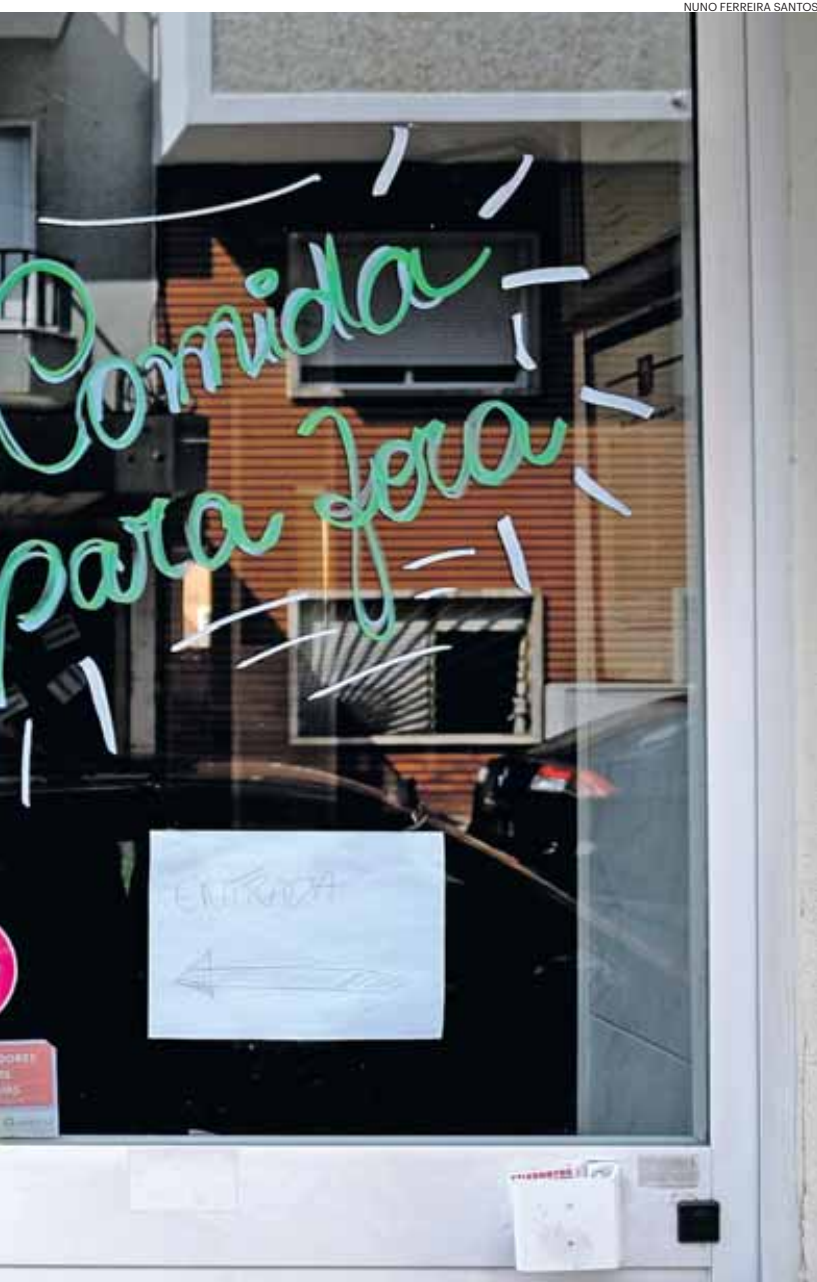 NUNO FERREIRA SANTOS
Comida
para fora
ENTRADA